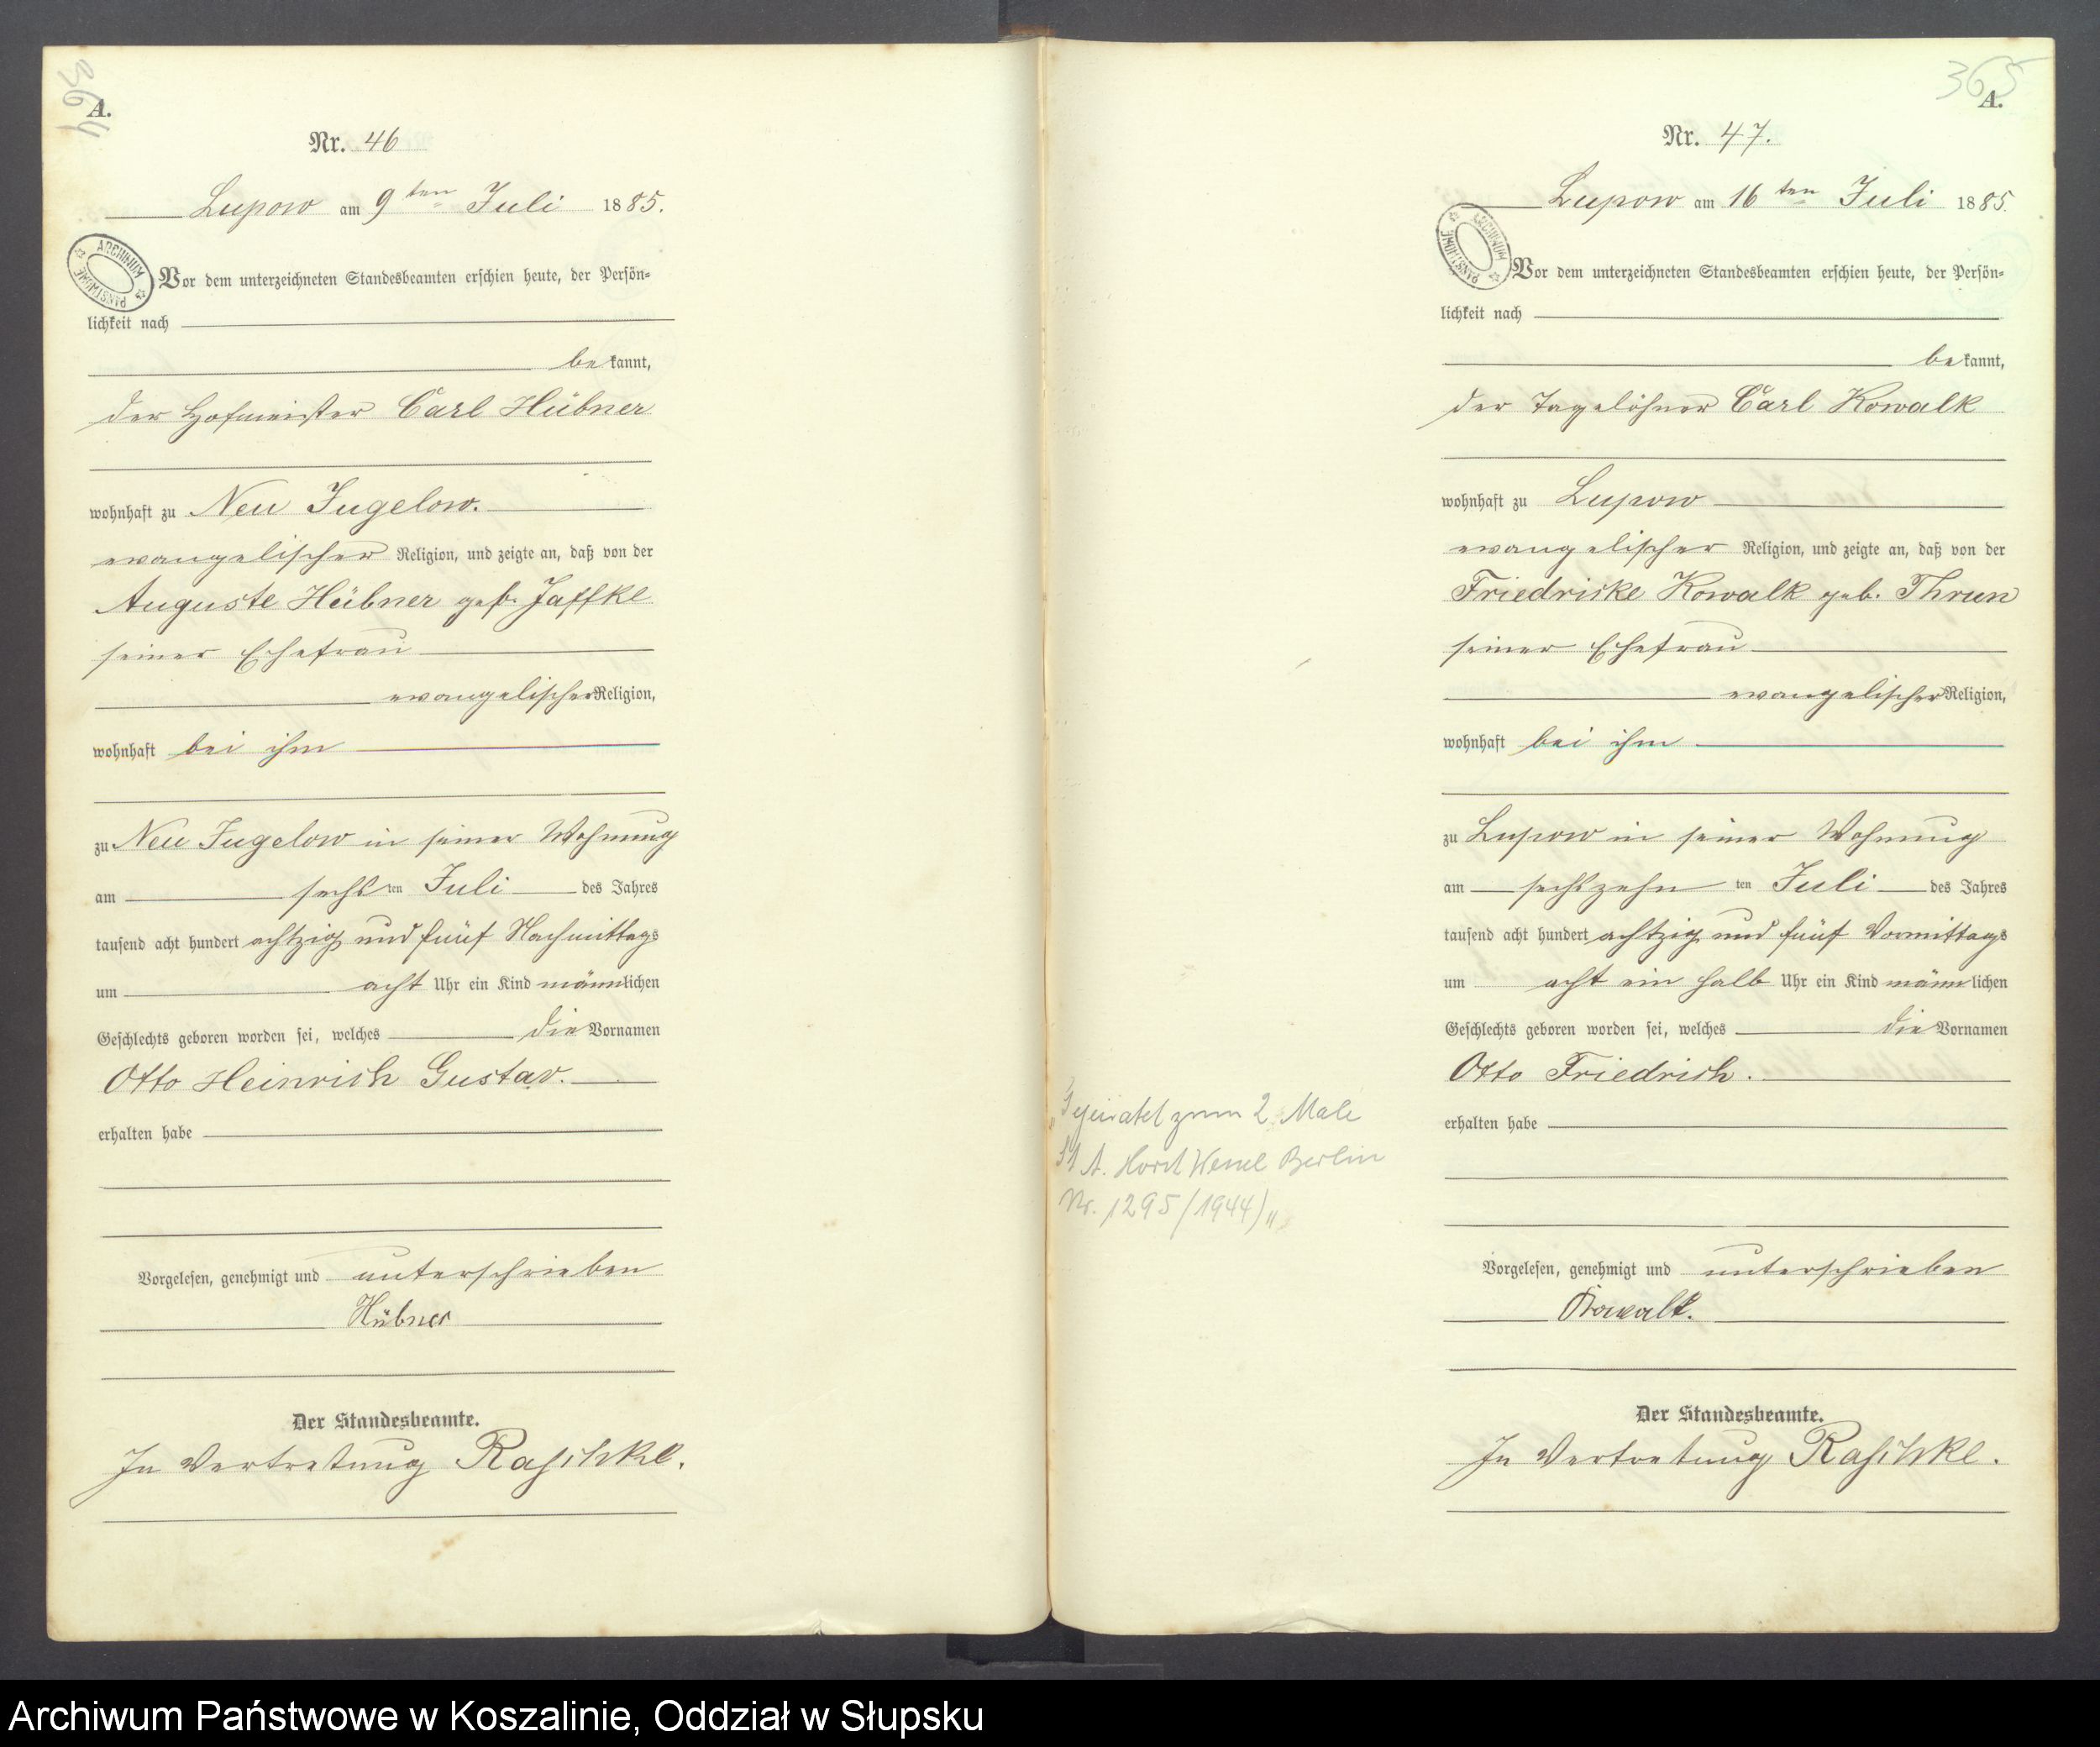 364
A.
Nr. 46
Lupow am 9ten Juli 1885.
ARCHIWUM PAŃSTWOWE
Vor dem unterzeichneten Standesbeamten erschien heute, der Persön-
lichkeit nach
bekannt,
der Hofmeister Carl Hübner
wohnhaft zu Neu Jugelow.
evangelischer Religion, und zeigte an, daß von der
Auguste Hübner geb. Jaffke
seiner Ehefrau
evangelischer Religion,
wohnhaft bei ihm
zu Neu Jugelow in seiner Wohnung
am sechsten Juli des Jahres
tausend acht hundert achtzig und fünf Nachmittags
um acht Uhr ein Kind männlichen
Geschlechts geboren worden sei, welches die Vornamen
Otto Heinrich Gustav.
erhalten habe
Vorgelesen, genehmigt und unterschrieben
Hübner
Der Standesbeamte.
In Vertretung Raschke.
365
A.
Nr. 47.
Lupow am 16ten Juli 1885.
ARCHIWUM PAŃSTWOWE
Vor dem unterzeichneten Standesbeamten erschien heute, der Persön-
lichkeit nach
bekannt,
der Tagelöhner Carl Kowalk
wohnhaft zu Lupow
evangelischer Religion, und zeigte an, daß von der
Friedricke Kowalk geb. Thrun
seiner Ehefrau
evangelischer Religion,
wohnhaft bei ihm
zu Lupow in seiner Wohnung
am sechszehnten Juli des Jahres
tausend acht hundert achtzig und fünf Vormittags
um acht ein halb Uhr ein Kind männlichen
Geschlechts geboren worden sei, welches die Vornamen
Otto Friedrich.
erhalten habe
Vorgelesen, genehmigt und unterschrieben
Kowalk.
Der Standesbeamte.
In Vertretung Raschke.
zum 2. Male
St A. Horst Wessel Berlin
Nr. 1295/1944)"
Archiwum Państwowe w Koszalinie, Oddział w Słupsku